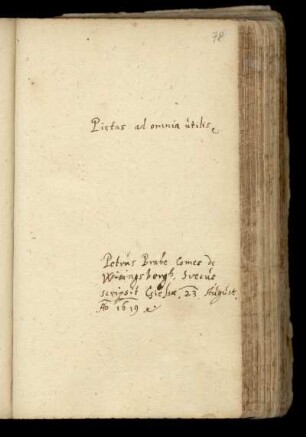 78
Pietas ad omnia utilis
Petrus Brahe Comes de
Wisingsborgh. Svecus
scripsit Giessæ, 23 August.
Ao 1619